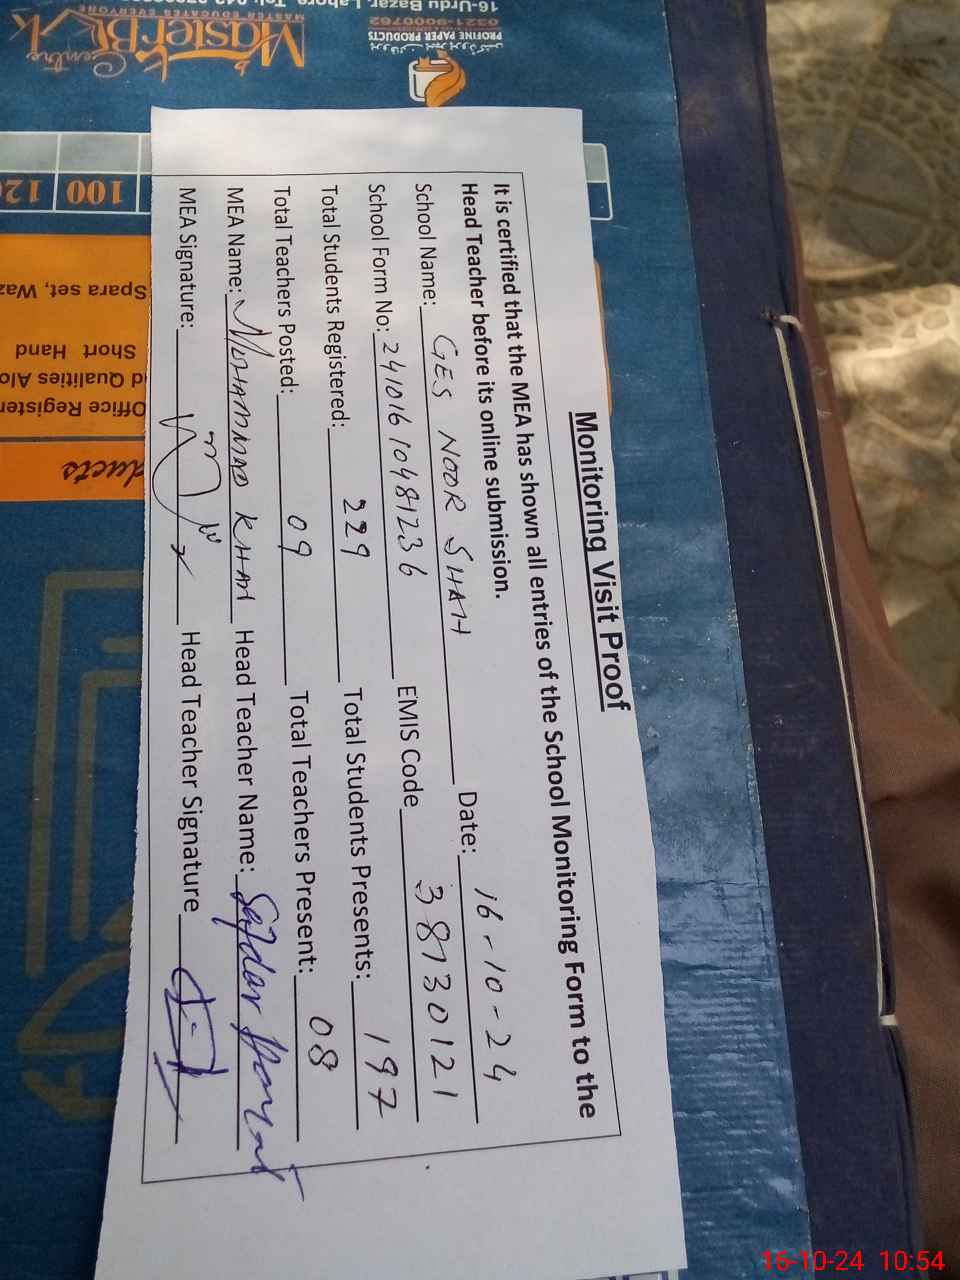 Monitoring Visit Proof
It is certified that the MEA has shown all entries of the School Monitoring Form to the
Head Teacher before its online submission.
School Name: GES NOOR SHAH Date: 16-10-24
School Form No: 24101610481236 EMIS Code 38730121
Total Students Registered: 229 Total Students Presents: 197
Total Teachers Posted: 09 Total Teachers Present: 08
MEA Name: MOHAMMAD KHAN Head Teacher Name: Safdar
MEA Signature: Head Teacher Signature
16-Urdu Bazar, Lahore. Tel:
MASTER EDUCATES EVERYONE
Master
Centre
PROFINE PAPER PRODUCTS
0321-9000762
100 12
Spara set, Waz
Short Hand
d Qualities Alo
Office Register
ducts
16-10-24 10:54